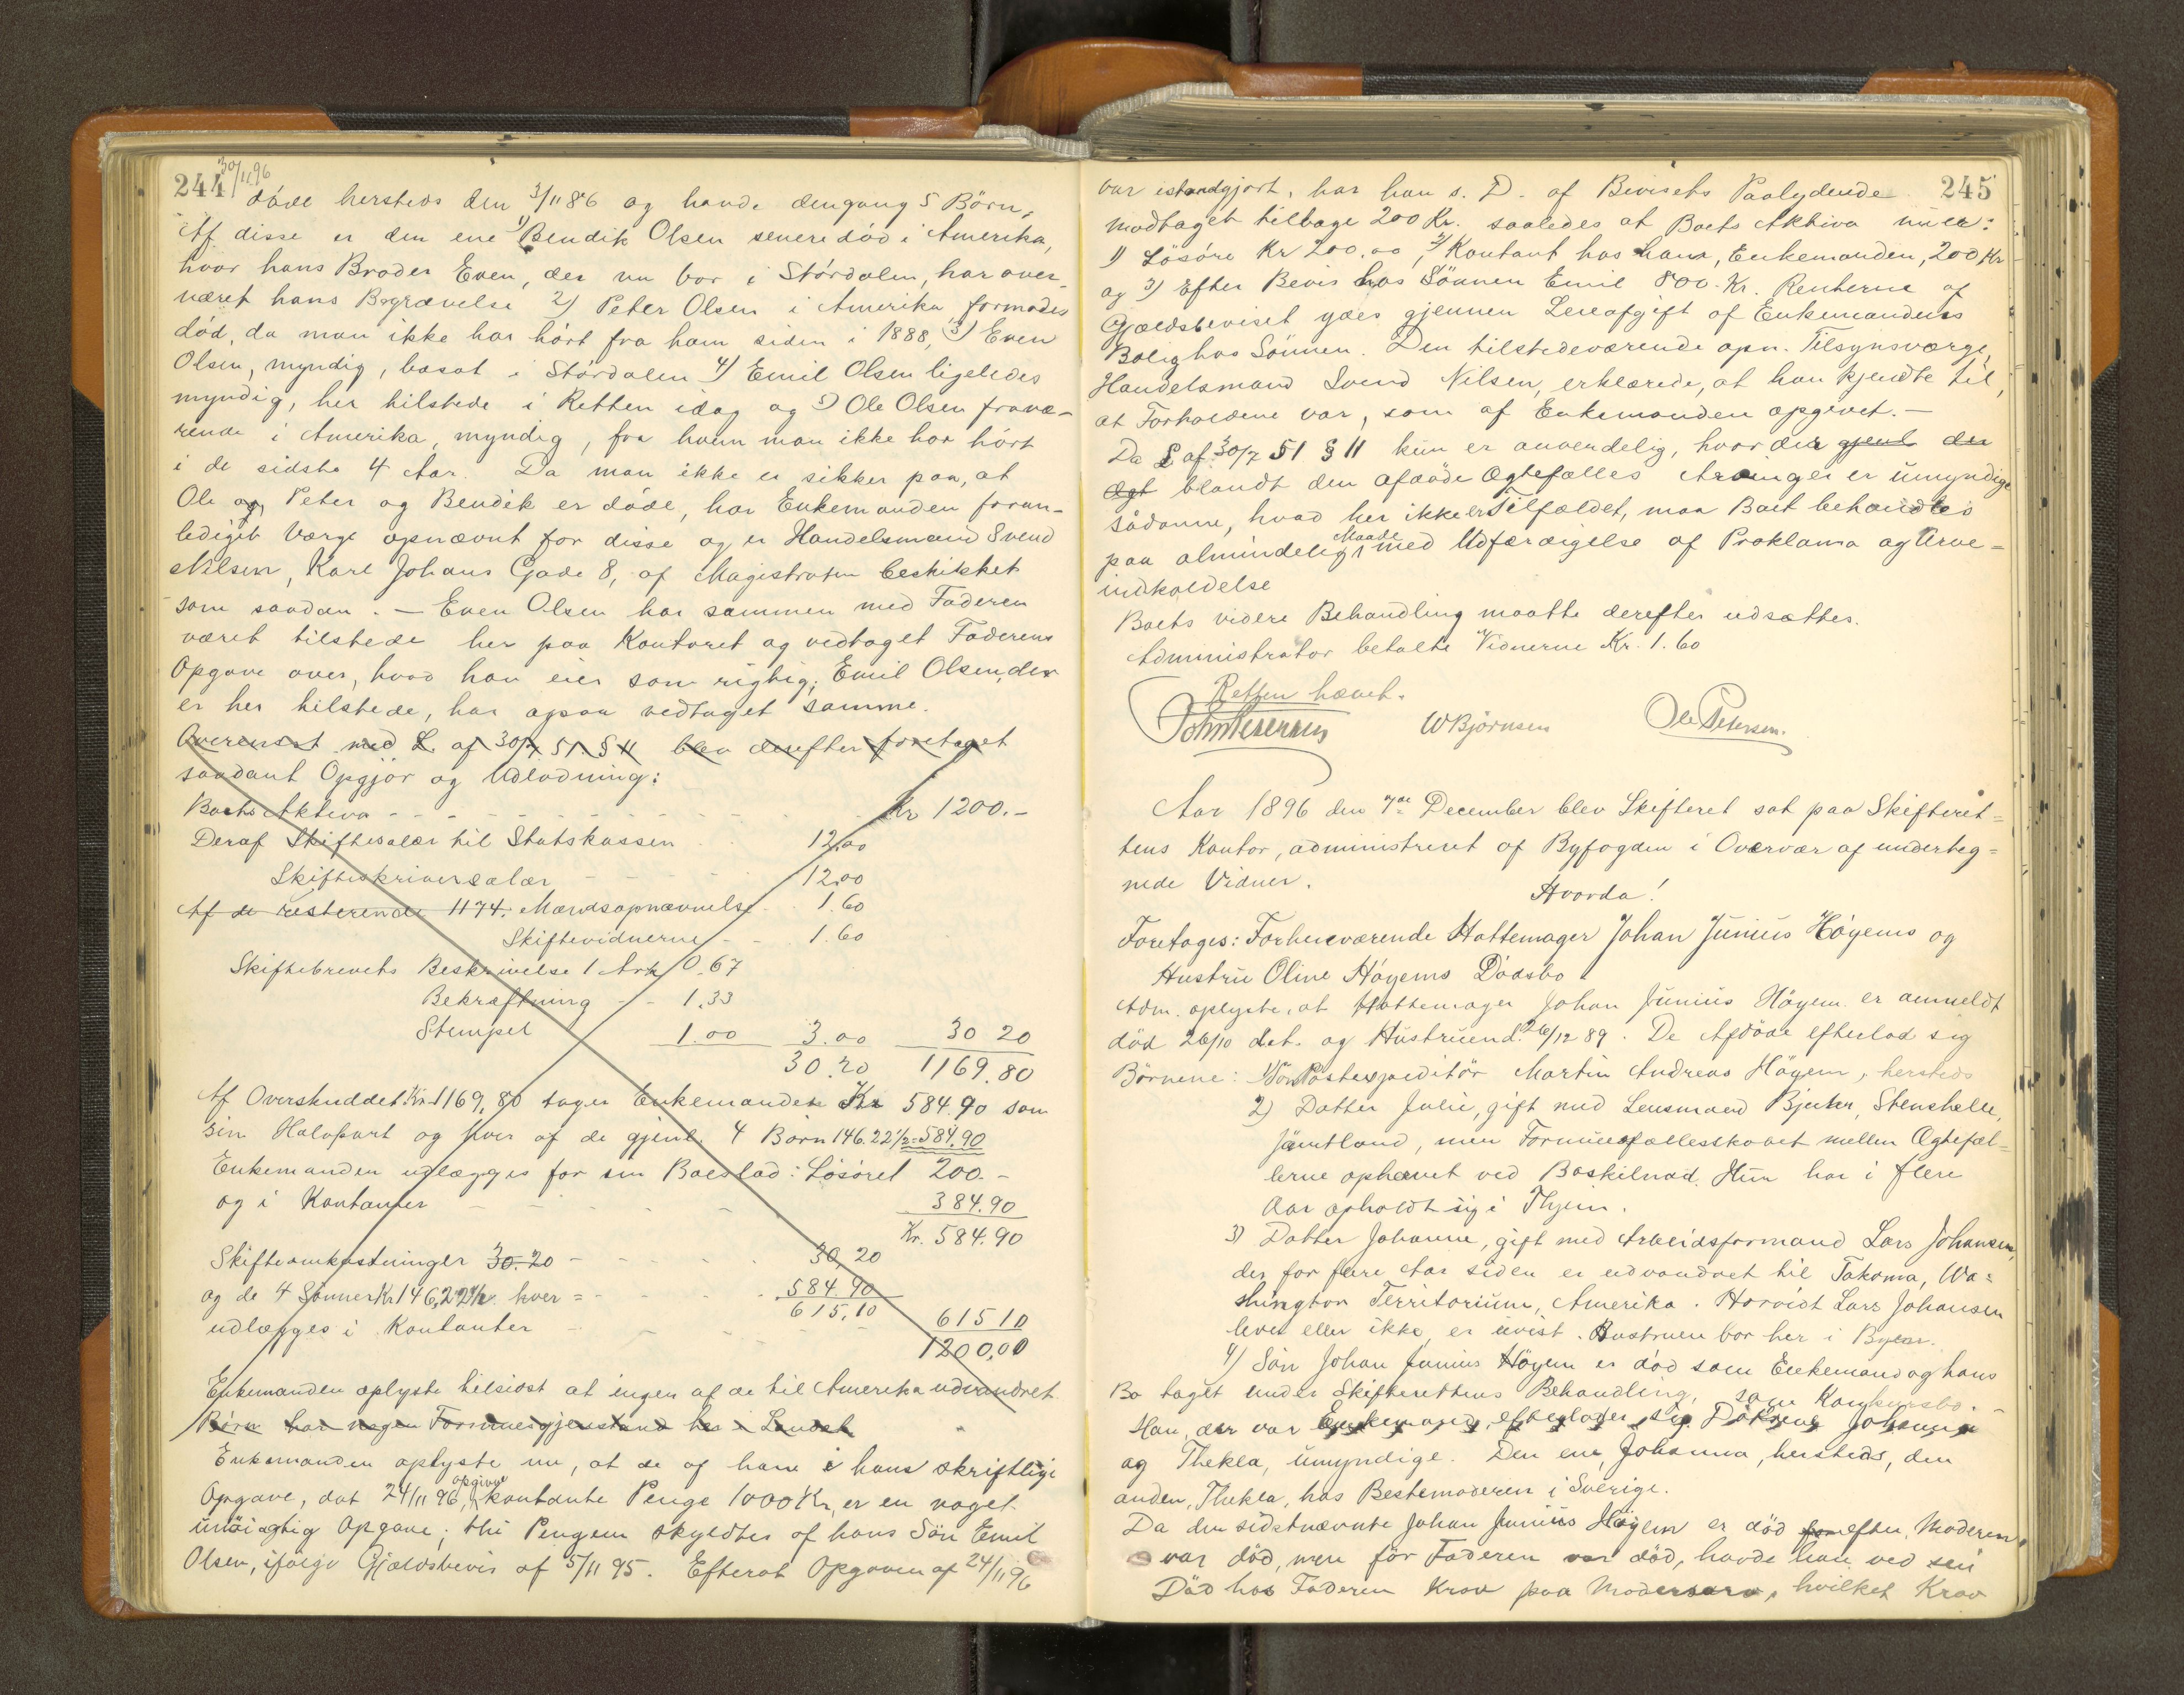 244 30/11 96
døde hersteds den 3/11 86 og havde dengang 5 Börn,
Af disse er den ene 1) Bendik Olsen senere död i Amerika,
hvor hans Broder Even, der nu bor i Stördalen, har over-
været hans Begravelse 2) Peter Olsen i Amerika formodes
død, da man ikke har hört fra ham siden i 1888, 3) Even
Olsen, myndig, bosat i Stördalen 4) Emil Olsen ligeledes
myndig, her tilstede i Retten idag og 5) Ole Olsen fravæ-
rende i Amerika, myndig, fra hvem man ikke har hört
i de sidste 4 Aar. Da man ikke er sikker paa, at
Ole og Peter og Bendik er døde, har Enkemanden foran-
lediget Værge opnævnt for disse og er Handelsmand Svend
Nilsen, Karl Johans Gade 8, af Magistraten beskikket
som saadan. — Even Olsen har sammen med Faderen
været tilstede her paa Kontoret og vedtaget Faderens
Opgave over, hvad han eier som rigtig; Emil Olsen, der
er her tilstede, har ogsaa vedtaget samme.
Overensst med L. af 30/7 51. § 11 blev derefter foretaget
saadant Opgjör og Udlodning:
Boets Aktiva - - - Kr 1200.-
Deraf Skiftesalær til Statskassen 12,00
Skifteskriversalær - - - 12,00
Af de resterende 1174. Mændsopnævnelse 1.60
Skiftevidnerne - - 1.60
Skiftebrevets Beskrivelse 1 Ark 0.67
Bekræftning - - 1.33
Stempel 1.00 3.00 30 20
30.20 1169.80
Af Overskuddet Kr 1169,80 tager Enkemanden Kr 584.90 som
sin Halvpart og hver af de gjenl. 4 Børn 146.22½=584.90
Enkemanden udlægges for sin Boeslod: Lösöret 200.-
og i Kontanter - - - 384.90
Kr. 584.90
Skifteomkostninger 30.20 - - - 30,20
og de 4 Sönner Kr 146,22½ hver = - - 584.90
615,10 615 10
udlægges i Kontanter - - -
1200,00
Enkemanden oplyste tilsidst at ingen af de til Amerika udvandret
Börn har nogen Formuesgjenstand her i Landet
Enkemanden oplyste nu, at de af ham i hans skriftlige
Opgave, dat 24/11 96, opgivne kontante Penge 1000 Kr, er en noget
unöiagtig Opgave; thi Pengene skyldtes af hans Sön Emil
Olsen, ifölge Gjældsbevis af 5/11 95. Efterat Opgaven af 24/11 96
245
var istandgjort, har han s. D. af Bevisets Paalydende
modtaget tilbage 200 Kr. saaledes at Boets Aktiva nu er:
1) Lösöre Kr 200.00, 2) Kontant hos ham, Enkemanden, 200 Kr
og 3) Efter Bevis hos Sönnen Emil 800. Kr. Renterne af
Gjældsbeviset ydes gjennem Leieafgift af Enkemandens
Bolig hos Sönnen. Den tilstedeværende opn. Tilsynsværge,
Handelsmand Svend Nilsen, erklærede, at han kjendte til,
at Forholdene var, som af Enkemanden opgivet. —
Da L af 30/7 51 § 11 kun er anvendelig, hvor der gjenl der
Ægt blandt den afdøde Ægtefælles Arvinger er umyndige
sådanne, hvad her ikke er Tilfældet, maa Boet behandles
paa almindelig Maade med Udfærdigelse af Proklama og Arve-
indkaldelse
Boets videre Behandling maatte derefter udsættes.
Administrator betalte Vidnerne Kr. 1.60
Retten hævet.
W Björnsen Ole Petersen.
Aar 1896 den 7de December blev Skifteret sat paa Skifteret-
tens Kontor, administreret af Byfogden i Overvær af underteg-
nede Vidner.
Hvorda!
Foretoges: Forhenværende Hattemager Johan Junius Höyems og
Hustru Oline Höyems Dödsbo
Adm. oplyste, at Hattemager Johan Junius Höyem er anmeldt
död 26/10 d.A. og Hustruen d. 26/12 89. De Afdöde efterlod sig
Börnene: 1) Sön Postexpeditör Martin Andreas Höyem, hersteds
2) Datter Julie, gift med Lensmand Bjerker, Stenshelle,
Jämtland, men Formuesfællesskabet mellem Ægtefæl-
lerne ophævet ved Boskilnad. Hun har i flere
Aar opholdt sig i Thjem.
3) Datter Johanne, gift med Arbeidsformand Lars Johansen,
der for flere Aar siden er udvandret til Takoma, Wa-
shington Territorium, Amerika. Hvorvidt Lars Johansen
lever eller ikke, er uvist. Hustruen bor her i Byen.
4) Sön Johan Junius Höyem er död som Enkemand og hans
Bo taget under Skifterettens Behandling, som Konkursbo.
Han, der var Enkemand, efterlader sig Döttrene Johanna
og Thekla, umyndige. Den ene, Johanna, hersteds, den
anden, Thekla, hos Bestemoderen i Sverige.
Da den sidstnævnte Johan Junius Höyem er död efter, Moderen
var död, men för Faderen var död, havde han ved sin
Död hos Faderen Krav paa Modersarv, hvilket Krav